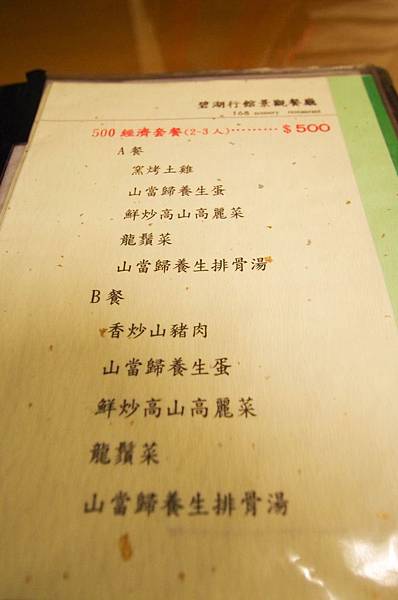 碧湖行館景觀餐廳
168 scenery restaurant
500 經濟套餐(2-3人)·········$500
A餐
窯烤土雞
山當歸養生蛋
鮮炒高山高麗菜
龍鬚菜
山當歸養生排骨湯
B餐
香炒山豬肉
山當歸養生蛋
鮮炒高山高麗菜
龍鬚菜
山當歸養生排骨湯